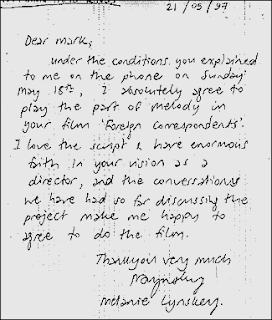 21/05/97
Dear Mark,
under the conditions you explained
to me on the phone on Sunday
May 18th, I absolutely agree to
play the part of melody in
your film 'Foreign Correspondents'.
I love the script & have enormous
faith in your vision as a
director, and the conversations
we have had so far discussing the
project make me happy to
agree to do the film.
Thankyou very much
Melanie Lynskey.